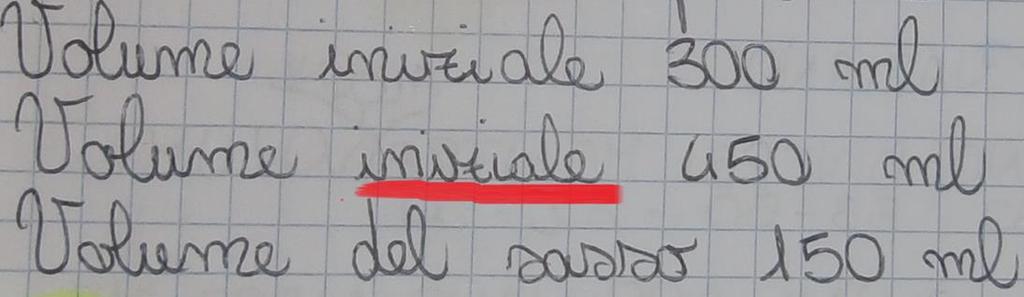 Volume iniziale 300 ml
Volume iniziale 450 ml
Volume del sasso 150 ml